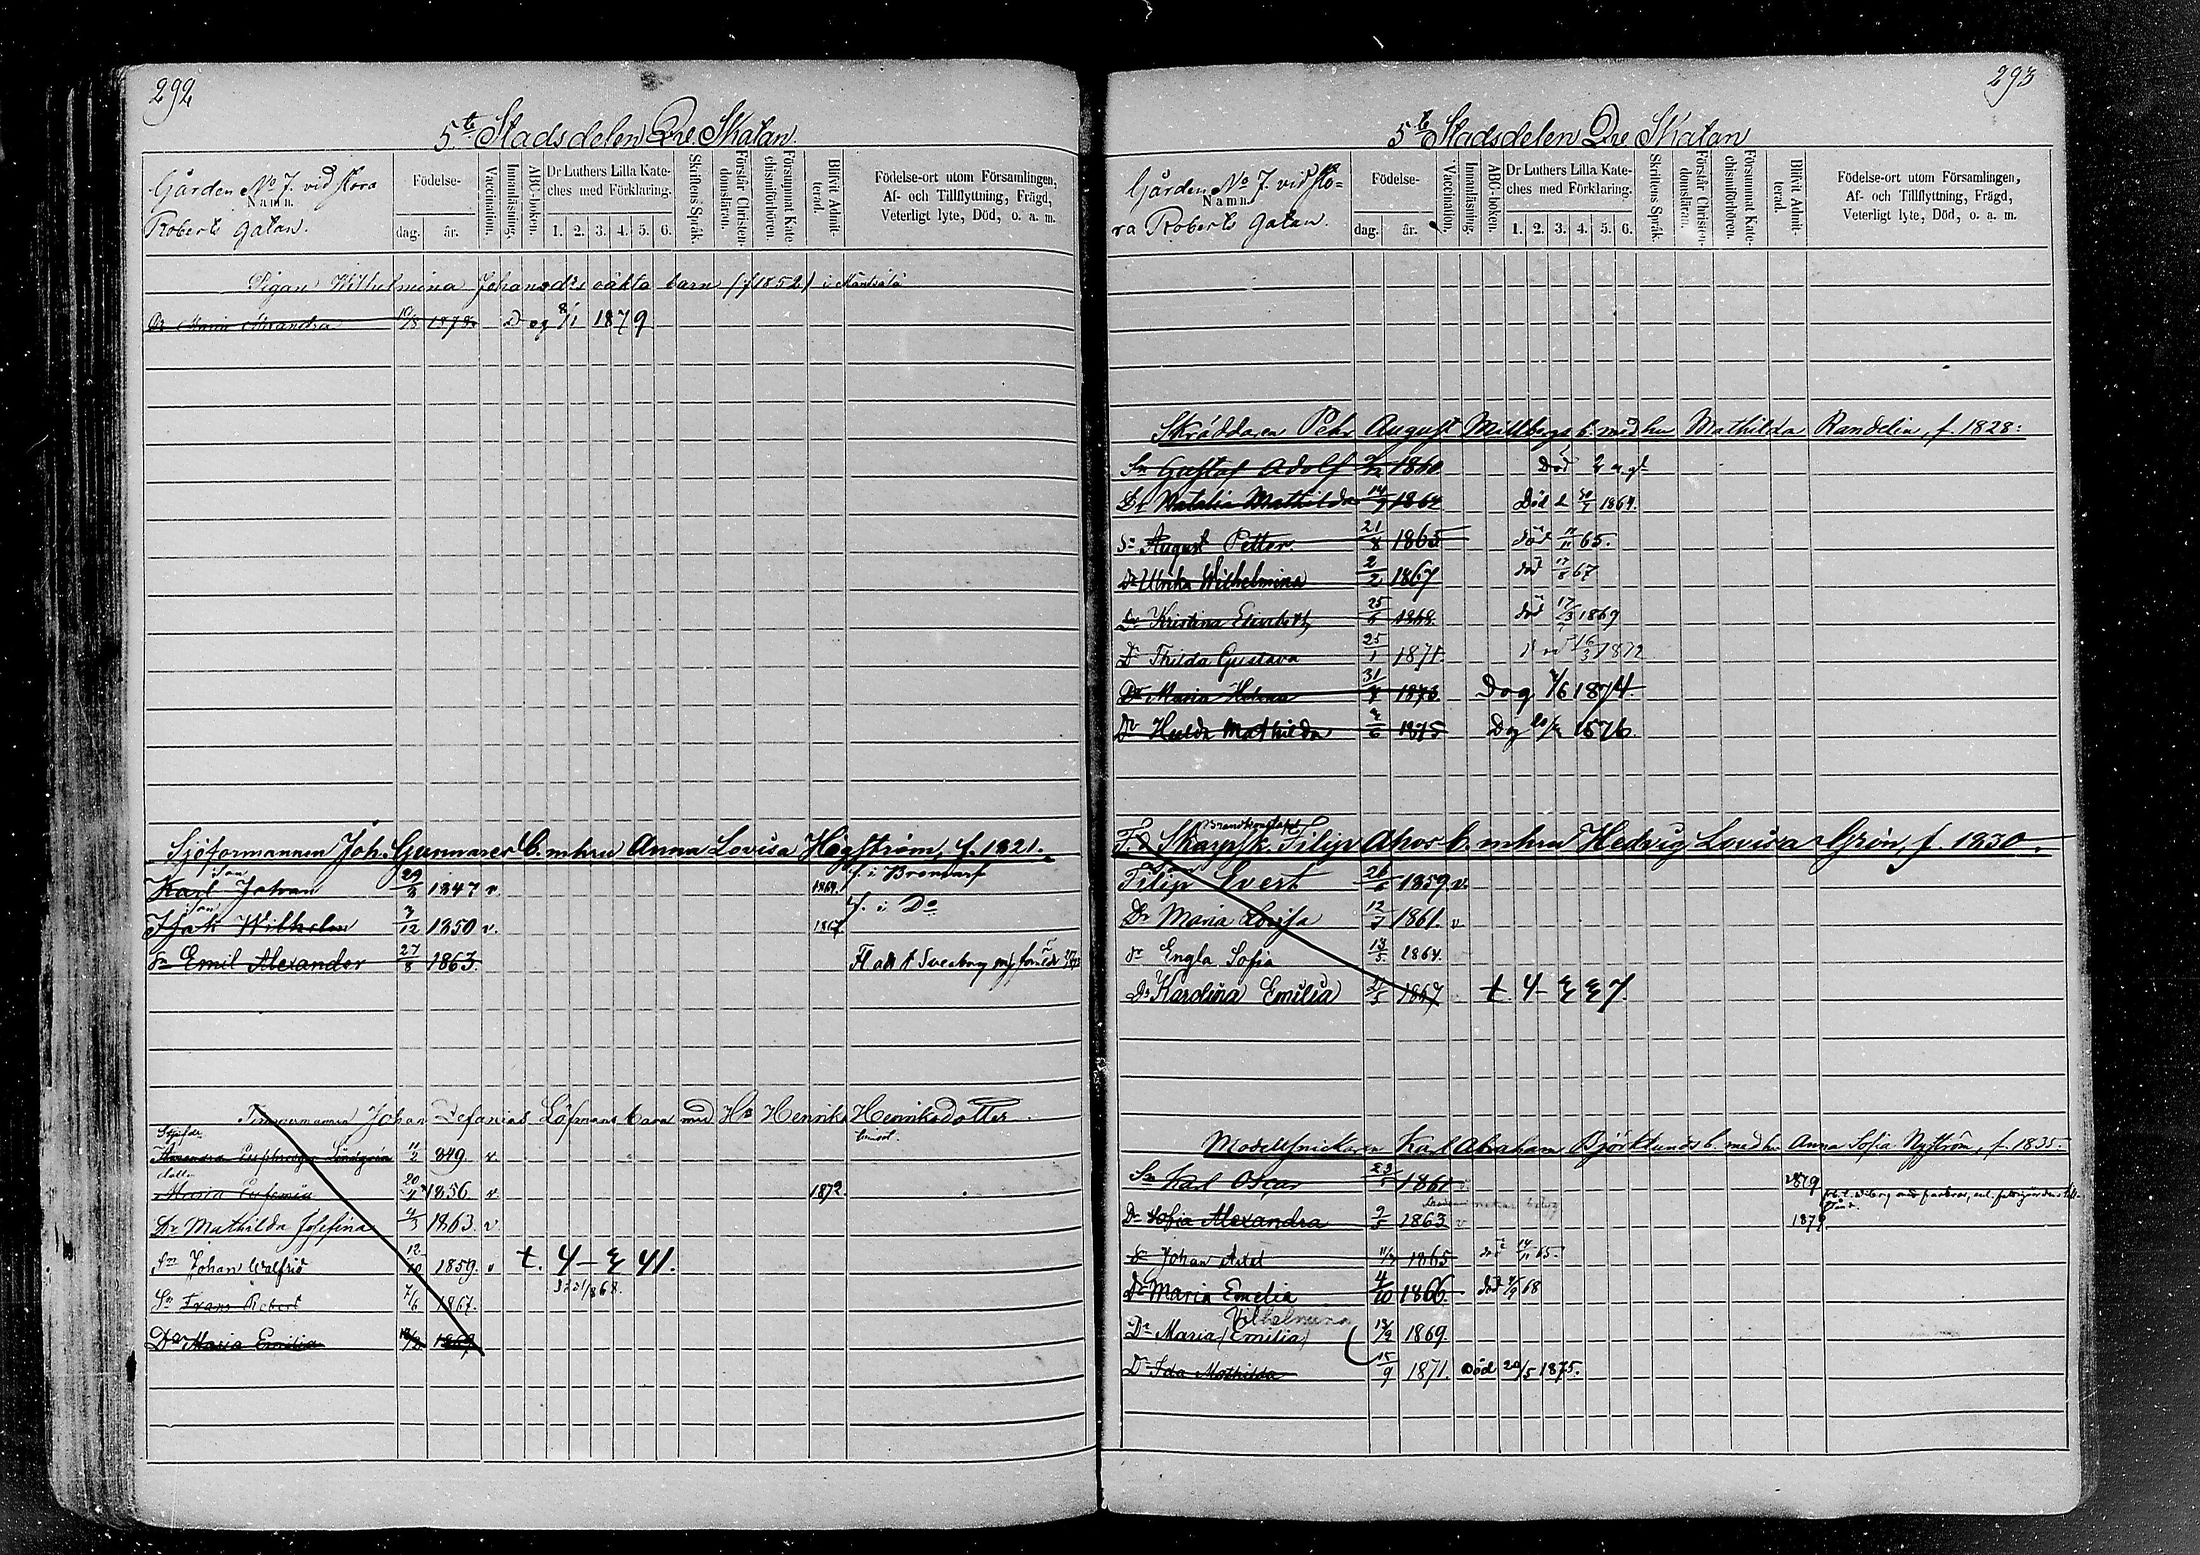 292
5te Stadsdelen Qre. Skatan
Gården No 7. vid Stora
Namn.
Roberts gatan.
Födelse-
dag. år.
Vaccination.
Innanläsning.
ABC-boken.
Dr Luthers Lilla Kate-
ches med Förklaring.
1. 2. 3. 4. 5. 6.
Skriftens Språk.
Förstår Christen-
domsläran.
Försummat Kate-
chismiförhören.
Blifvit Admit-
terad.
Födelse-ort utom Församlingen,
Af- och Tillflyttning, Frägd,
Veterligt lyte, Död, o. a. m.
Pigan Wilhelmina Johansd:s oäkta barn (f 1852) i Mäntsälä
Dr Maria 1878 Dog 8/1 1879
Sjöformannen Joh. Gunnares b. m hu Anna Lovisa Hogström, f. 1821.
son
Karl Johan 29/3 1847 v 1864. f. i Bromarf
son
Wilhelm 3/12 1850 v. 1867. f. i Do
Sn Emil Alexander 27/8 1863.
Timmermannen Johan Zefanias Löfmans barn med Ha Henrika Henriksdotter
Styfdr
Alexandra Lindqvin 11/2 849. v.
dotter
Maria Eufemia 20/4 1856 v 1872.
Dr Mathilda Josefina 4/3 1863. v
Sn Johan Walfrid 12/10 1859. v t. 4 – ξ 41.
Sn Frans Robert 7/6 1867. 1868.
Dr Maria Emilia 1869
293
5te Stadsdelen Qre Skatan
Gården No 7. vid Sto-
Namn.
ra Roberts Gatan.
Födelse-
dag. år.
Vaccination.
Innanläsning.
ABC-boken.
Dr Luthers Lilla Kate-
ches med Förklaring.
1. 2. 3. 4. 5. 6.
Skriftens Språk.
Förstår Christen-
domsläran.
Försummat Kate-
chismiförhören.
Blifvit Admit-
terad.
Födelse-ort utom Församlingen,
Af- och Tillflyttning, Frägd,
Veterligt lyte, Död, o. a. m.
Skräddaren Petr August Millbergs b. med hu Mathilda Randelin, f. 1828:
Sn Gustaf Adolf 1860 Död
Dr Natalia Mathilda 14/7 1864 Död d 30/7 1864.
Sn August Petter 21/8 1865 död 11/11 65.
Dr Ulrika Wilhelmina 2/2 1867 död 17/8 67
Dr Kristina Elisabeth 25/5 1868 död 17/3 1869
Dr Thilda Gustava 25/1 1871. 16/3 1872
Dr Maria Helena 31/7 1873 Dog 4/6 1874.
Dr Hulda Mathilda 2/6 1875 Dog 1876.
Filip Ahor b. m hu Hedvig Lovisa Grön, f. 1830.
Filip Evert 26/6 1859 v.
Dr Maria Lovisa 12/7 1861. v
Dr Engla Sofia 13/5 1864.
Dr Karolina Emilia 21/5 1867 t 4 – ξ ξ 7.
Modellsnickaren Karl Abraham Björklunds b. med hu Anna Sofia Nyström, f. 1835.
Sn Karl Oscar 23/5 1861 1879
Dr Sofia Alexandra 9/5 1863 v 1879
Sn Johan Axel 11/2 1865 död 14/11 65.
Dr Maria Emelia 4/10 1866 död 4/9 68
Vilhelmina
Dr Maria (Emilia) 13/2 1869.
Dr Ida Mathilda 15/9 1871. död 20/5 1875.